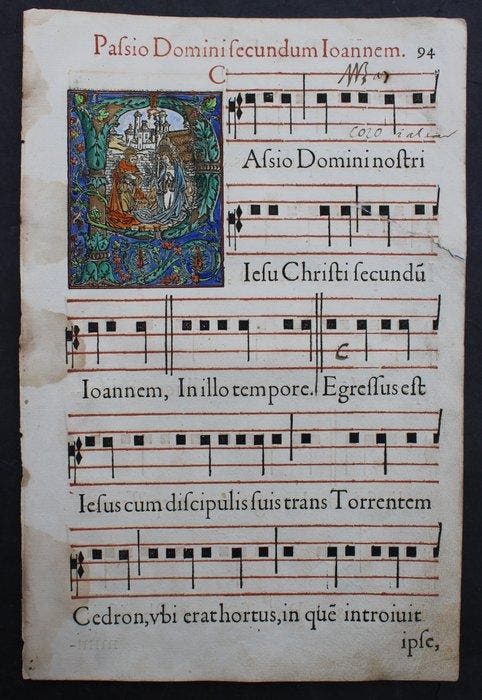 Paſsio Domini ſecundum Ioannem. 94
C
Aſsio Domini noſtri
Ieſu Chriſti ſecundũ
C
Ioannem, In illo tempore. Egreſſus eſt
Ieſus cum diſcipulis ſuis trans Torrentem
Cedron, vbi erat hortus, in quẽ introiuit
ipſe,